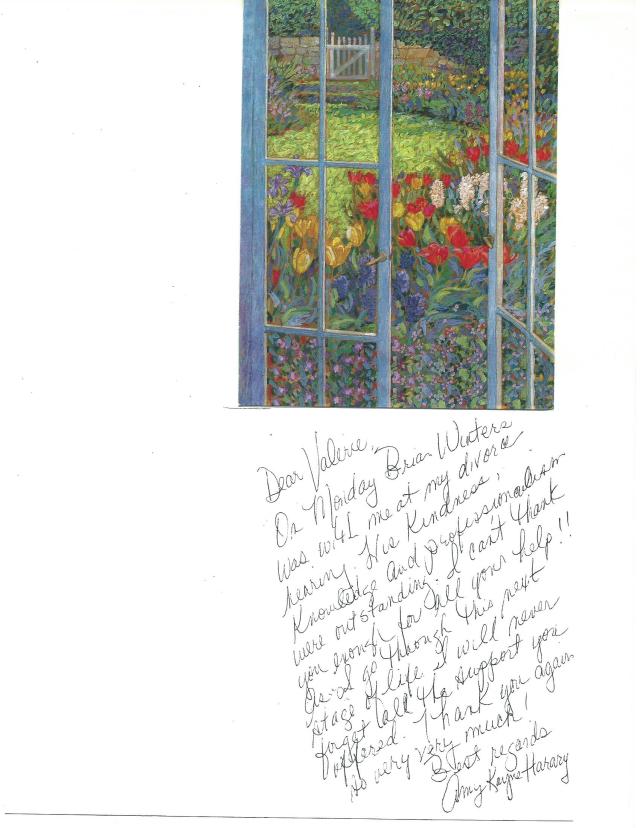 Dear Valerie,
On Monday Brian Winters
was with me at my divorce
hearing. His Kindness,
Knowledge and professionalism
were outstanding. I can't thank
you enough for all your help!!
As I go through this next
stage of life I will never
forget all the support you
offered. Thank you again
so very very much!
Best regards
Amy Kayne Harary